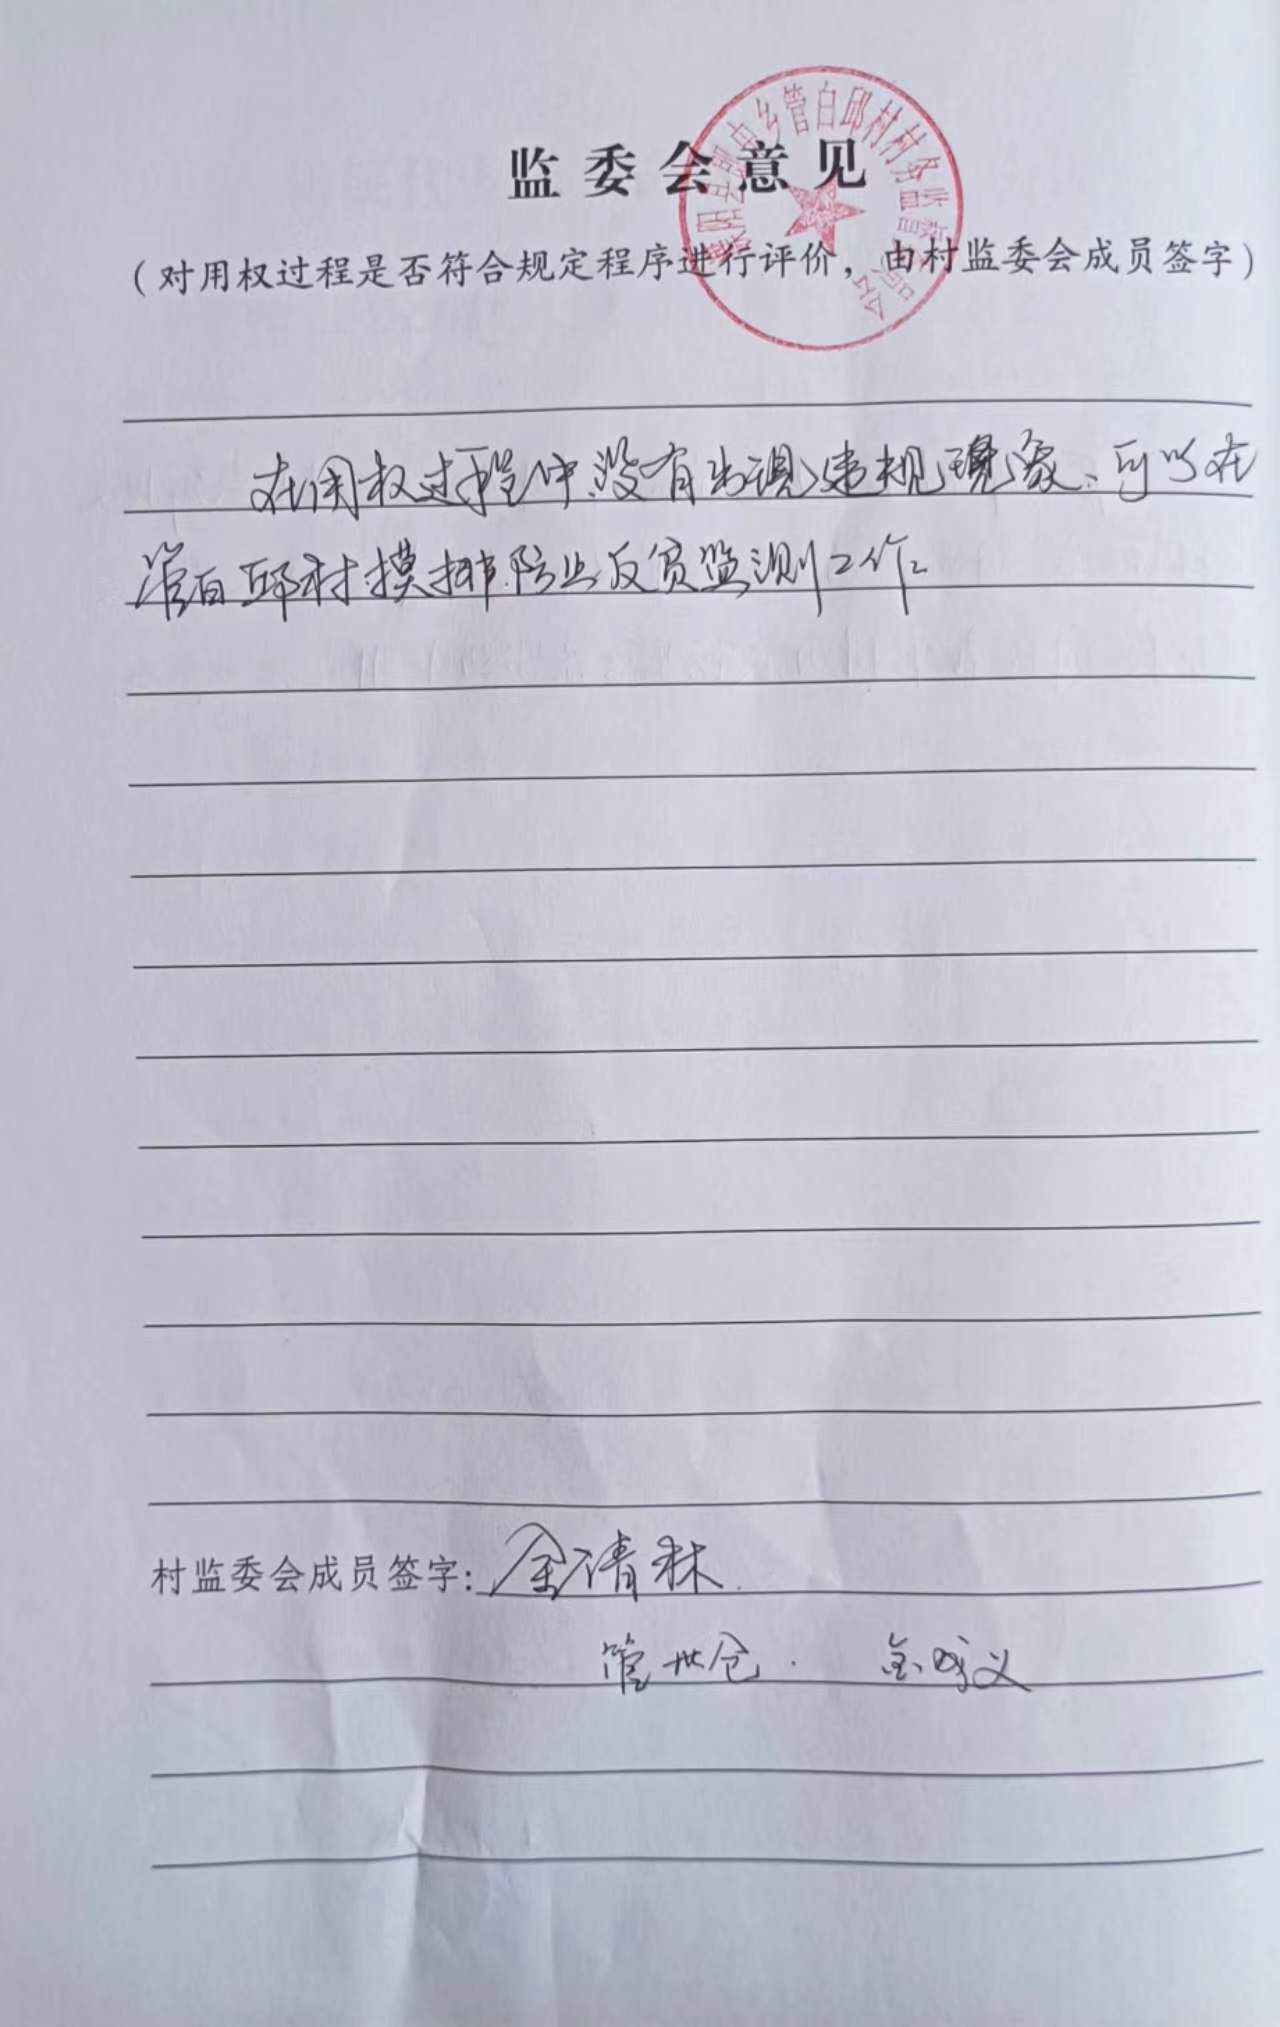 监委会意见
(对用权过程是否符合规定程序进行评价，由村监委会成员签字)
乡管白邱村村务监督委员会
在用权过程中没有出现违规现象，可以在
管白邱村摸排防止反贫监测工作。
村监委会成员签字：金清林
管世仓 金成义